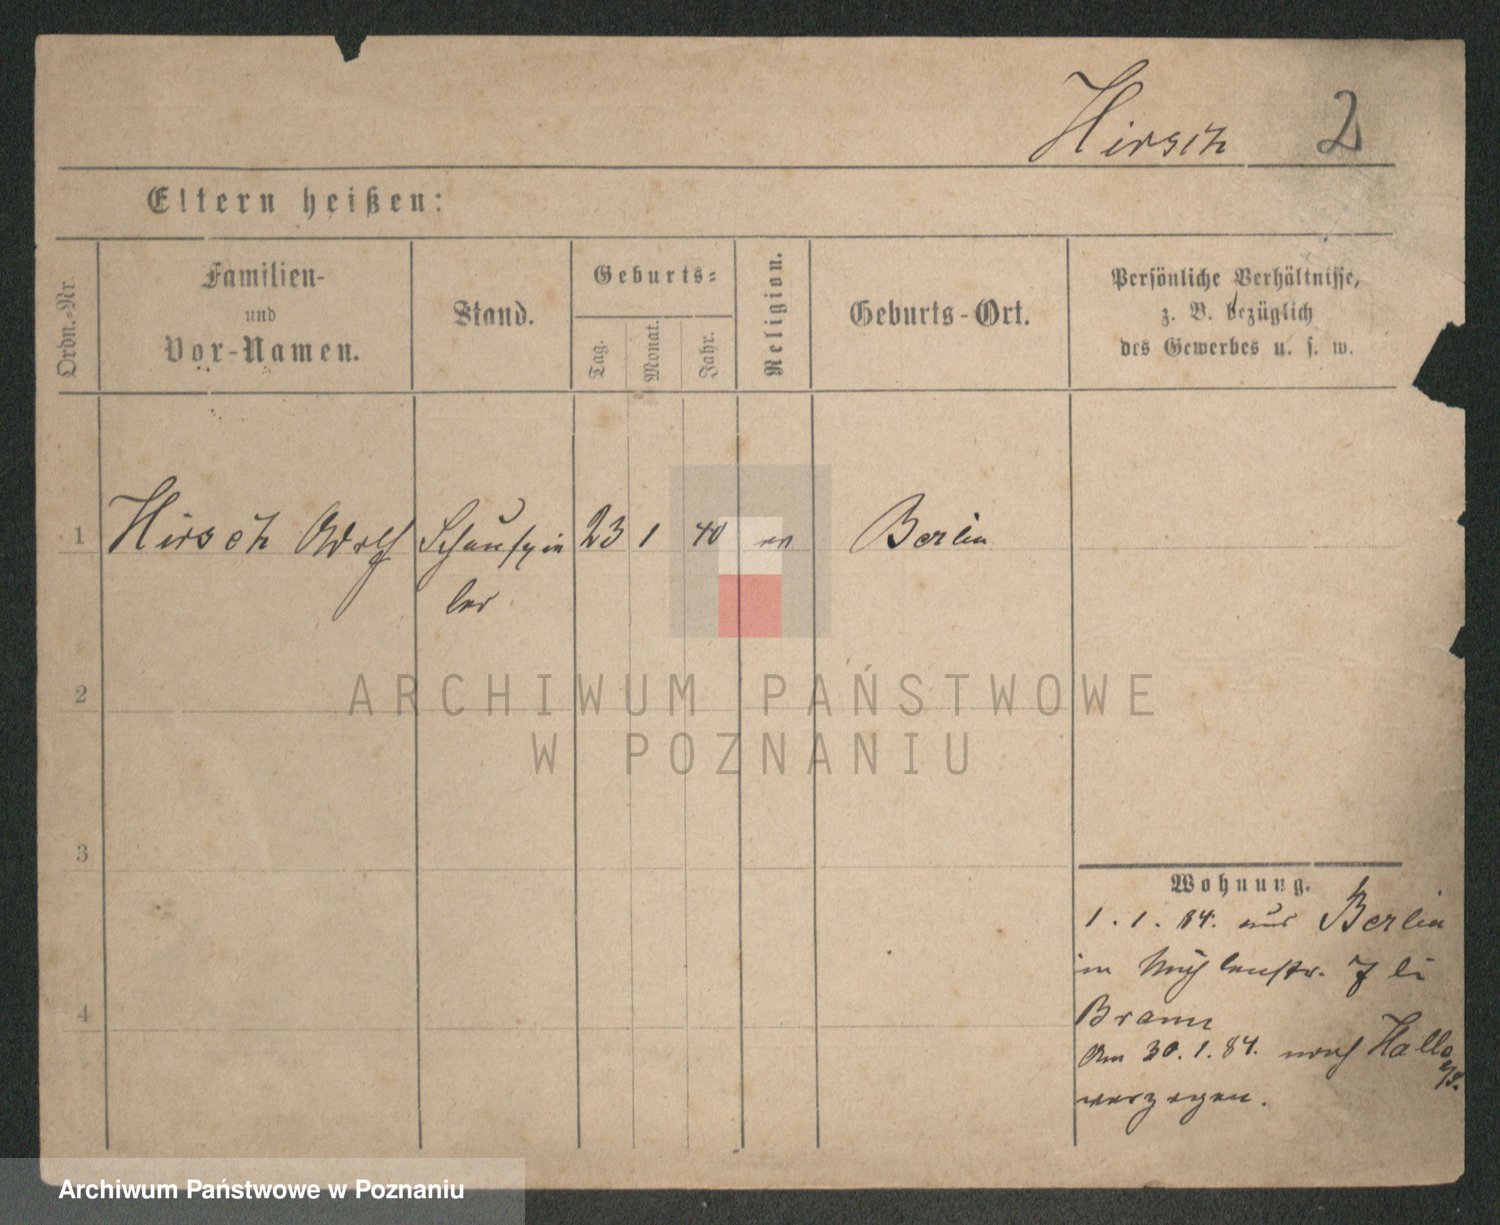 Hirsch 2
Eltern heißen:
Ordn.-Nr.
Familien-
und
Vor-Namen.
Stand.
Geburts-
Tag.
Monat.
Jahr.
Religion.
Geburts-Ort.
Persönliche Verhältnisse,
z. B. bezüglich
des Gewerbes u. s. w.
1 Hirsch Adolf Schauspie 23 1 40 ev Berlin
ler
2
3
4
Wohnung.
1. 1. 84. aus Berlin
in Mühlenstr. 7 bei
Braun
Am 30. 1. 84. nach Halle
a/S.
verzogen.
ARCHIWUM PAŃSTWOWE
W POZNANIU
Archiwum Państwowe w Poznaniu